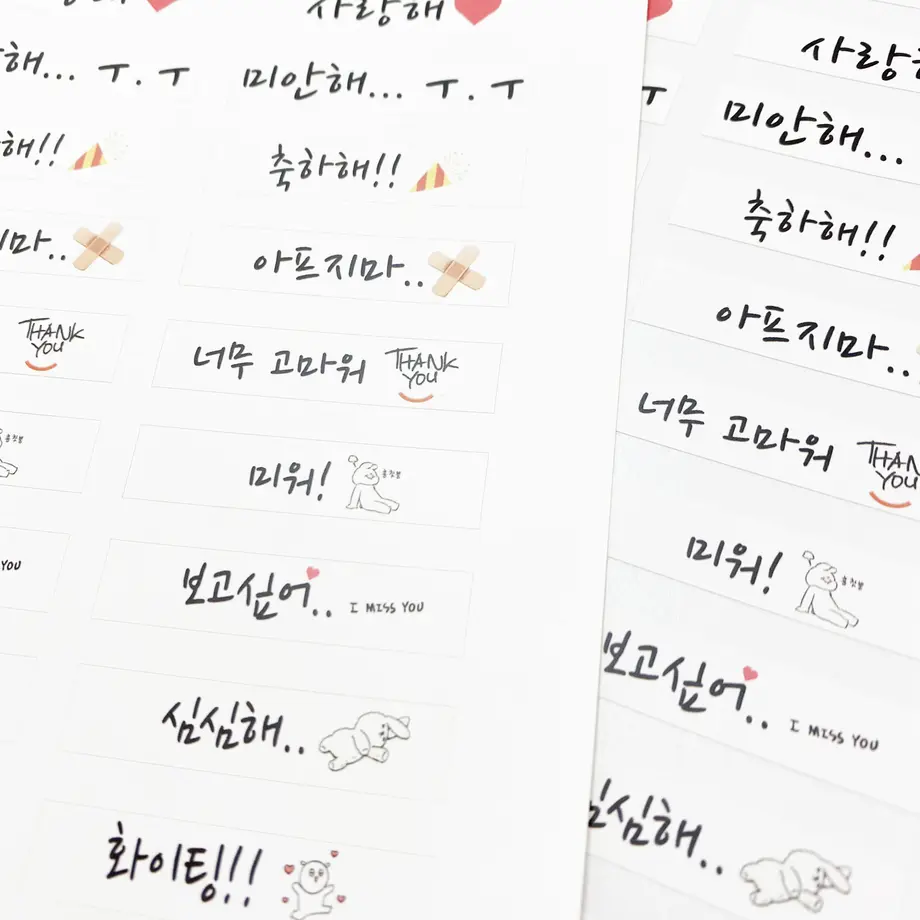 사랑해
미안해... ㅜ.ㅜ
축하해!!
아프지마..
너무 고마워 THANK YOU
미워!
보고싶어.. I MISS YOU
심심해..
화이팅!!!
해
해... ㅜ.ㅜ
해!!
지마..
THANK YOU
YOU
사랑해
미안해...
축하해!!
아프지마..
너무 고마워 THANK YOU
미워!
보고싶어.. I MISS YOU
심심해..